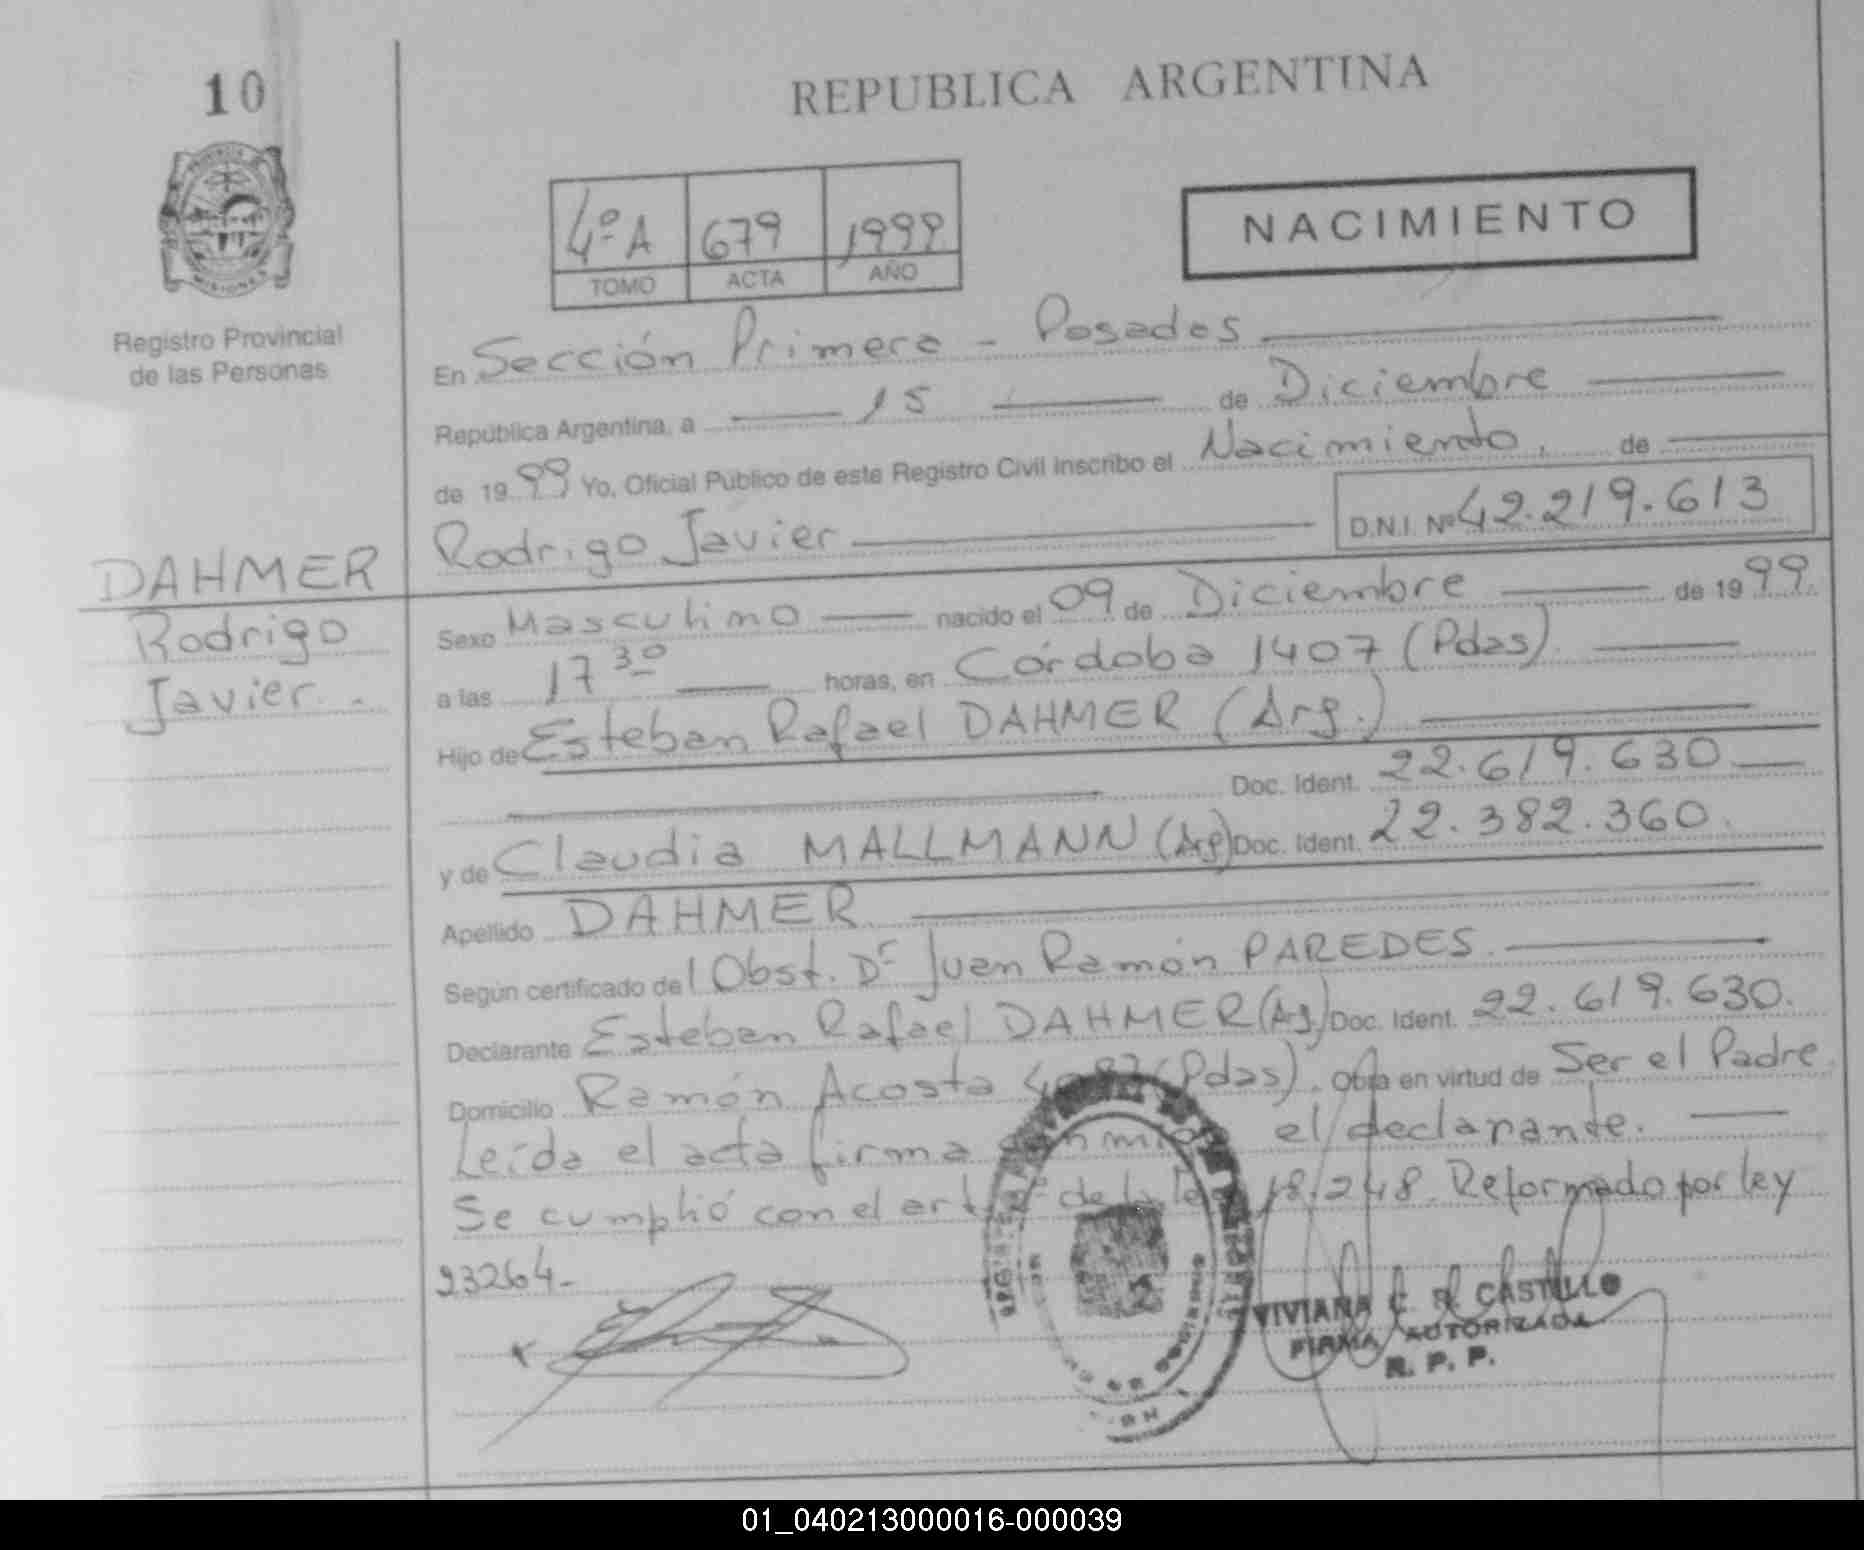 10
REPUBLICA ARGENTINA
PROVINCIA DE MISIONES
4º A 679 1999
TOMO ACTA AÑO
NACIMIENTO
Registro Provincial
de las Personas
En Sección Primera - Posadas
República Argentina, a 15 de Diciembre
de 1999 Yo, Oficial Público de este Registro Civil inscribo el Nacimiento, de
Rodrigo Javier D.N.I. Nº 42.219.613
DAHMER
Rodrigo
Javier.-
Sexo Masculino nacido el 09 de Diciembre de 1999.
a las 17 30 horas, en Córdoba 1407 (Pdas).
Hijo de Esteban Rafael DAHMER (Arg.)
Doc. Ident. 22.619.630
y de Claudia MALLMANN (Arg) Doc. Ident. 22.382.360.
Apellido DAHMER
Según certificado de l Obst. Dr Juan Ramón PAREDES.
Declarante Esteban Rafael DAHMER (Arg.) Doc. Ident. 22.619.630.
Domicilio Ramón Acosta (Pdas). Obra en virtud de Ser el Padre.
Leída el acta firma el declarante.
Se cumplió con el art de la Ley 18.248. Reformado por ley
23264-
VIVIANA C. R. CASTILLO
FIRMA AUTORIZADA
R. P. P.
01_040213000016-000039